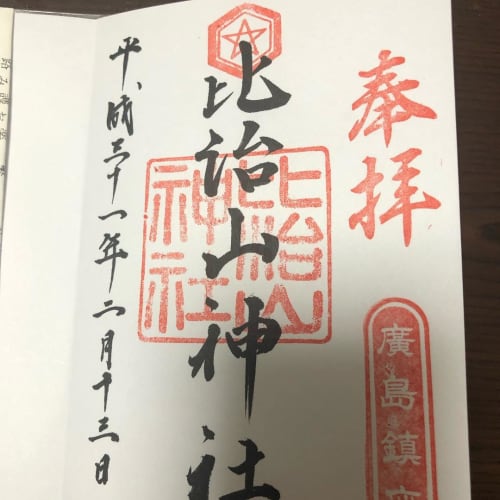 奉拝
廣島鎮
比治山神社
比治山
神社
平成三十一年二月十三日